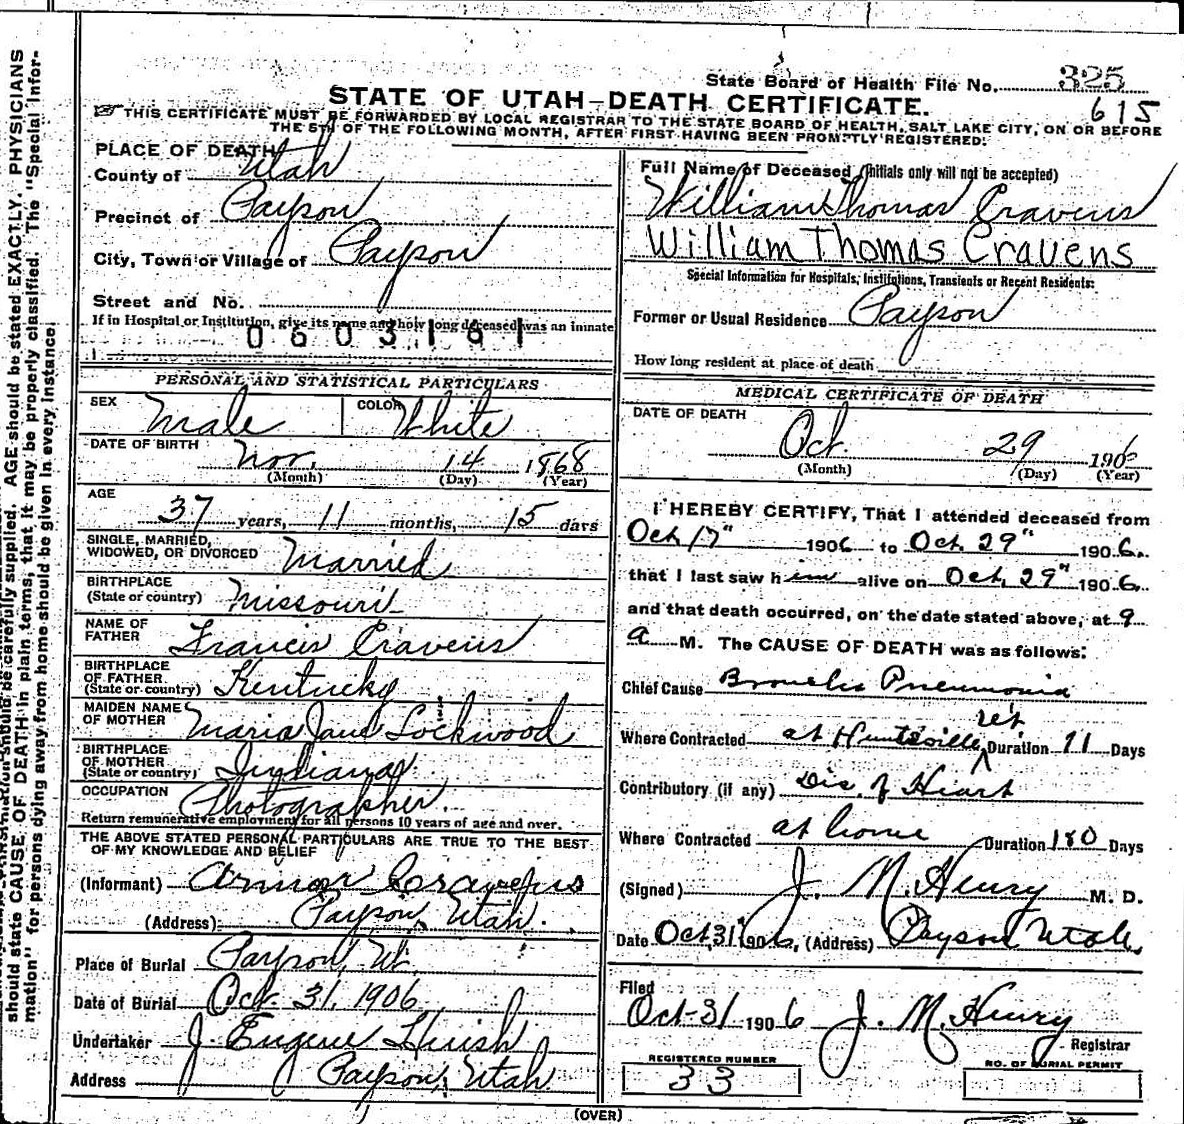 State Board of Health File No. 325
615
STATE OF UTAH—DEATH CERTIFICATE.
THIS CERTIFICATE MUST BE FORWARDED BY LOCAL REGISTRAR TO THE STATE BOARD OF HEALTH, SALT LAKE CITY, ON OR BEFORE
THE 5TH OF THE FOLLOWING MONTH, AFTER FIRST HAVING BEEN PROMPTLY REGISTERED.
PLACE OF DEATH
County of Utah
Precinct of Payson
City, Town or Village of Payson
Street and No.
If in Hospital or Institution, give its name and how long deceased was an inmate
0603161
PERSONAL AND STATISTICAL PARTICULARS
SEX Male COLOR White
DATE OF BIRTH Nov. 14 1868
(Month) (Day) (Year)
AGE 37 years, 11 months, 15 days
SINGLE, MARRIED,
WIDOWED, OR DIVORCED Married
BIRTHPLACE
(State or country) Missouri
NAME OF
FATHER Francis Cravens
BIRTHPLACE
OF FATHER
(State or country) Kentucky
MAIDEN NAME
OF MOTHER Maria Jane Lockwood
BIRTHPLACE
OF MOTHER
(State or country) Indiana
OCCUPATION Photographer.
Return remunerative employment for all persons 10 years of age and over.
THE ABOVE STATED PERSONAL PARTICULARS ARE TRUE TO THE BEST
OF MY KNOWLEDGE AND BELIEF
(Informant) Armor Cravens
(Address) Payson, Utah.
Place of Burial Payson, Ut.
Date of Burial Oct. 31, 1906
Undertaker J. Eugene Huish
Address Payson, Utah
Full Name of Deceased (Initials only will not be accepted)
William Thomas Cravens
William Thomas Cravens
Special Information for Hospitals, Institutions, Transients or Recent Residents:
Former or Usual Residence Payson
How long resident at place of death
MEDICAL CERTIFICATE OF DEATH
DATE OF DEATH
Oct. 29 1906
(Month) (Day) (Year)
I HEREBY CERTIFY, That I attended deceased from
Oct 17" 1906 to Oct. 29" 1906.
that I last saw him alive on Oct. 29" 1906
and that death occurred, on the date stated above, at 9
a M. The CAUSE OF DEATH was as follows:
Chief Cause Pneumonia
Where Contracted at Huntsville, Ut Duration 11 Days
Contributory (if any) Dis. of Heart
Where Contracted at home Duration 180 Days
(Signed) J. M. Henry M. D.
Date Oct 31 1906, (Address) Payson Utah
Filed
Oct-31 1906 J. M. Henry
Registrar
REGISTERED NUMBER
33
NO. OF BURIAL PERMIT
(OVER)
should be carefully supplied. AGE should be stated EXACTLY. PHYSICIANS
should state CAUSE OF DEATH in plain terms, that it may be properly classified. The "Special Infor-
mation" for persons dying away from home should be given in every instance.